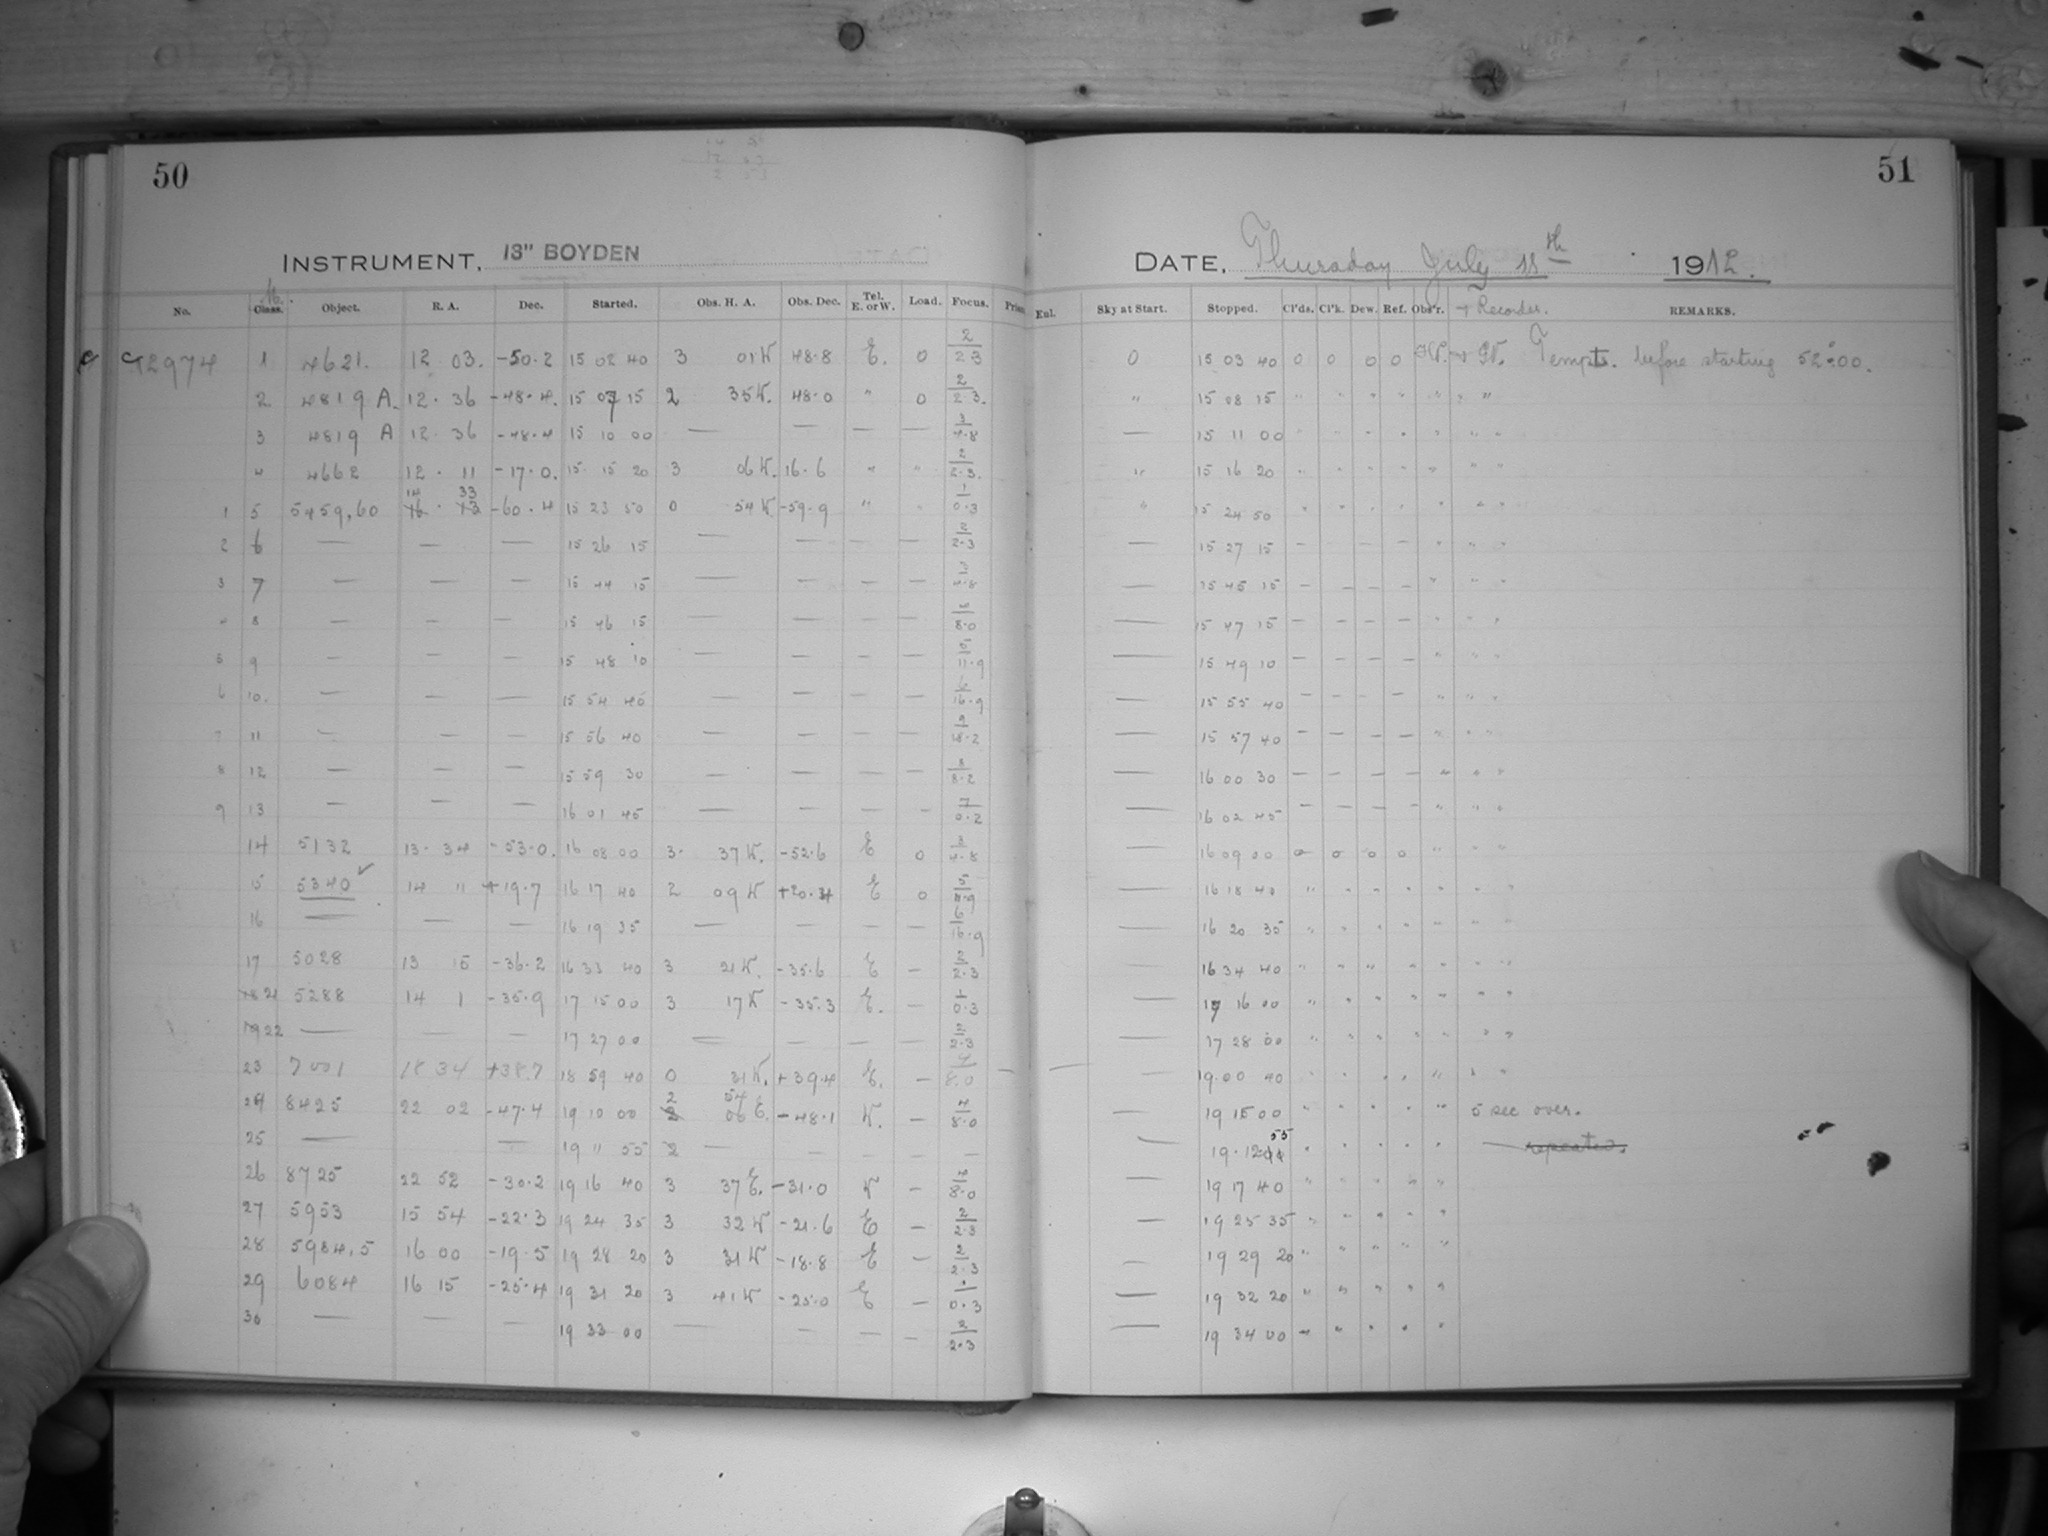 50
51
INSTRUMENT, 13" BOYDEN
DATE, Thursday July 18th 1912.
No. Class. Object. R. A. Dec. Started. Obs. H. A. Obs. Dec. Tel. E. or W. Load. Focus. Eul. Sky at Start. Stopped. Cl'ds. Cl'k. Dew. Ref. Obs'r. Recorder. REMARKS.
C 12974 1 4621. 12 03. -50.2 15 02 40 3 01 W 48.8 E. 0 2/2.3 0 15 03 40 0 0 0 0 Tempt. before starting 52°.00.
2 4819 A. 12.36 -48.4. 15 07 15 2 35 W. 48.0 " 0 2/2.3. " 15 08 15 " " " " " " "
3 4819 A 12.36 -48.4 15 10 00 — — — — 3/4.8 — 15 11 00 " " " " " " "
4 4662 12.11 -17.0. 15 15 20 3 06 W. 16.6 " " 2/2.3. " 15 16 20 " " " " " " "
1 5 5459,60 14 33 -60.4 15 23 50 0 54 W -59.9 " " 1/0.3 " 15 24 50 " " " " " " "
2 6 — — — 15 26 15 — — — — 2/2.3 — 15 27 15 — — — — " " "
3 7 — — — 15 44 15 — — — — 3/4.8 — 15 45 15 — — — — " " "
4 8 — — — 15 46 15 — — — — 8.0 — 15 47 15 — — — — " " "
5 9 — — — 15 48 10 — — — — 5/11.9 — 15 49 10 — — — — " " "
6 10. — — — 15 54 40 — — — — 6/16.9 — 15 55 40 — — — — " " "
7 11 — — — 15 56 40 — — — — 9/18.2 — 15 57 40 — — — — " " "
8 12 — — — 15 59 30 — — — — 8/8.2 — 16 00 30 — — — — " " "
9 13 — — — 16 01 45 — — — — 7/0.2 — 16 02 45 — — — — " " "
14 5132 13.34 -53.0. 16 08 00 3. 37 W. -52.6 E 0 3/4.8 16 09 00 0 0 0 0 " " "
15 5340 ✓ 14 11 +19.7 16 17 40 2 09 W +20.4 E 0 5 16 18 40 " " " " " " "
16 — — — 16 19 35 — — — — 6/16.9 16 20 35 " " " " " " "
17 5028 13 15 -36.2 16 33 40 3 21 W. -35.6 E — 2/2.3 16 34 40 " " " " " " "
21 5288 14 1 -35.9 17 15 00 3 17 W -35.3 E. — 1/0.3 17 16 00 " " " " " " "
22 — — — 17 27 00 — — — — 2/2.3 17 28 00 " " " " " " "
23 7001 18 34 +38.7 18 59 40 0 31 W. +39.4 E. — 4/8.0 — — 19.00 40 " " " " " " "
24 8425 22 02 -47.4 19 10 00 2 54 E. -48.1 W. — 4/8.0 — 19 15 00 " " " " " 5 sec over.
25 — — 19 11 55 2 — — — — — — 19.12 55 " " " " " repeated.
26 8725 22 52 -30.2 19 16 40 3 37 E. -31.0 W — 8.0 — 19 17 40 " " " " "
27 5953 15 54 -22.3 19 24 35 3 32 W -21.6 E — 2/2.3 — 19 25 35 " " " " "
28 5984,5 16 00 -19.5 19 28 20 3 31 W -18.8 E — 2/2.3 — 19 29 20 " " " " "
29 6084 16 15 -25.4 19 31 20 3 41 W -25.0 E — 1/0.3 — 19 32 20 " " " " "
30 — — — 19 33 00 — — — — 2/2.3 — 19 34 00 " " " " "